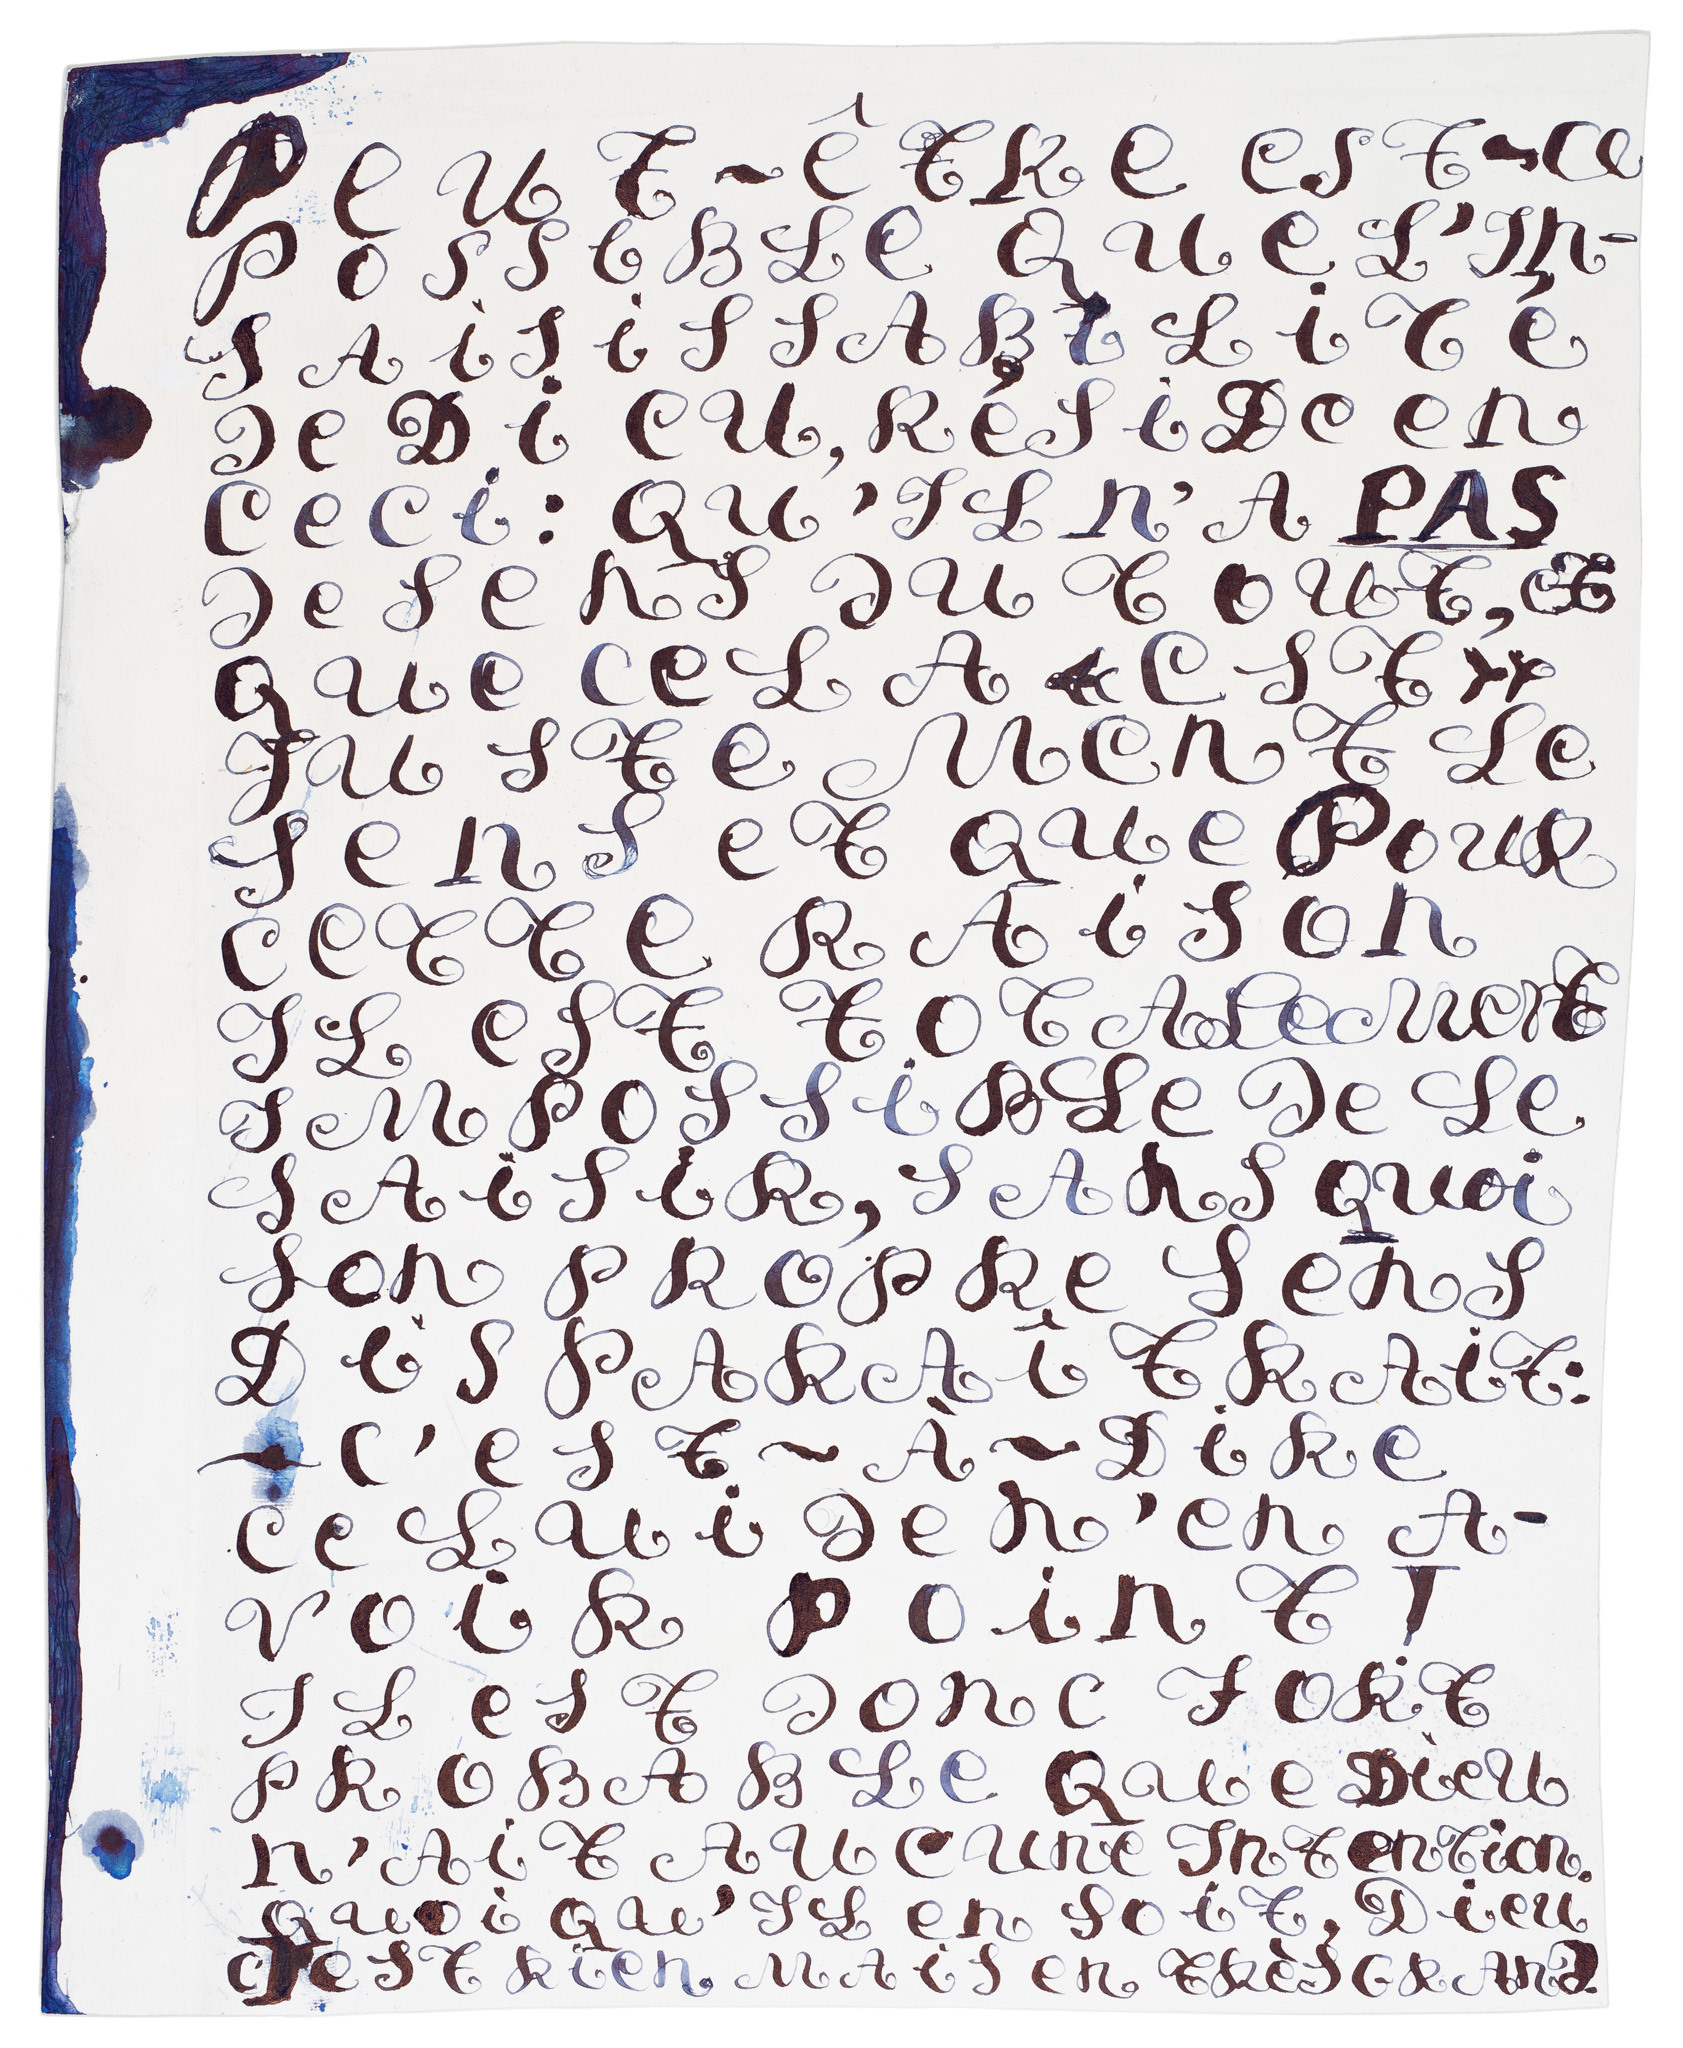 PEUT~ÊTRE EST~CE
POSSIBLE QUE L'IN-
SAISISSABILITÉ
DE DIEU, RÉSIDE EN
CECI: QU'IL N'A PAS
DE SENS DU TOUT, ET
QUE CELA «EST»
JUSTEMENT LE
SENS ET QUE POUR
CETTE RAISON
IL EST TOTALEMENT
IMPOSSIBLE DE LE
SAISIR, SANS QUOI
SON PROPRE SENS
DISPARAÎTRAIT:
— C'EST~À~DIRE
CELUI DE N'EN A-
VOIR POINT!
IL EST DONC FORT
PROBABLE QUE DIEU
N'AIT AUCUNE INTENTION.
QUOI QU'IL EN SOIT, DIEU
C'EST RIEN MAIS EN TRÈS GRAND.